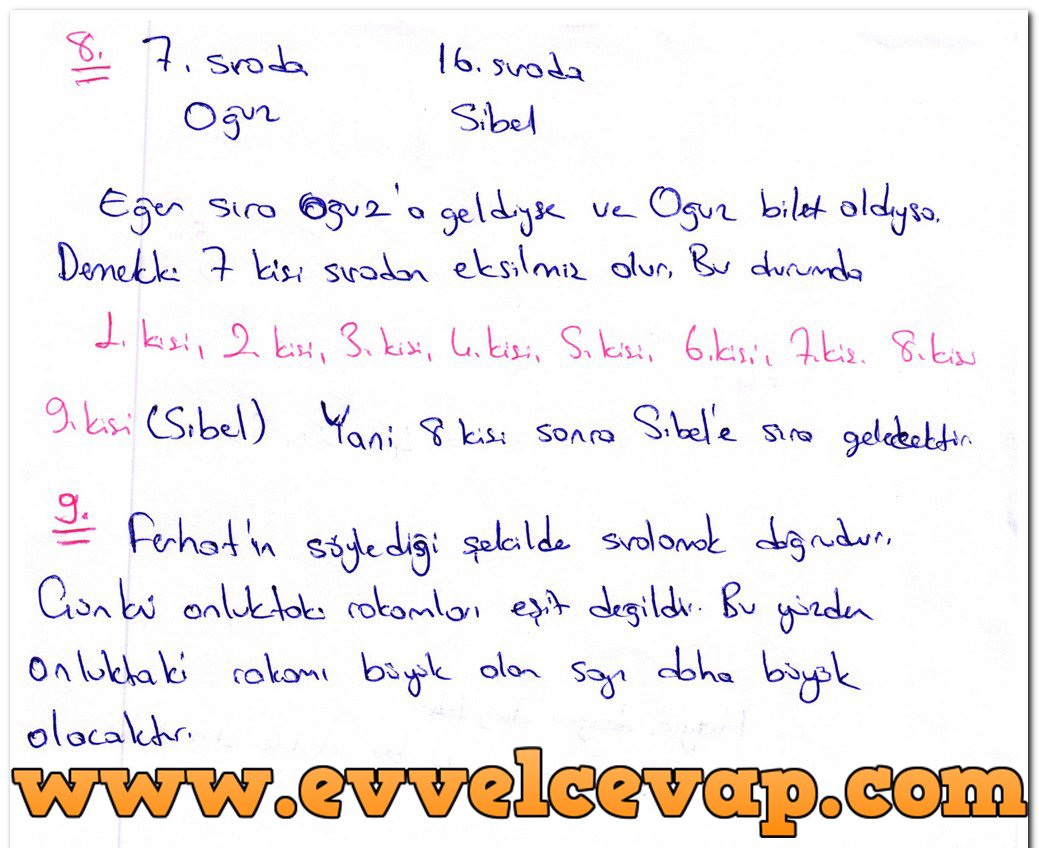 8. 7. sırada 16. sırada
Oğuz Sibel
Eğer sıra Oğuz'a geldiyse ve Oğuz bilet aldıysa.
Demekki 7 kişi sıradan eksilmiz olur. Bu durumda
1. kişi, 2. kişi, 3. kişi, 4. kişi, 5. kişi, 6. kişi, 7. kişi. 8. kişi
9. kişi (Sibel) Yani 8 kişi sonra Sibel'e sıra gelecektir
9. Ferhat'ın söylediği şekilde sıralamak doğrudur.
Çünkü onluktaki rakamları eşit değildir. Bu yüzden
onluktaki rakamı büyük olan sayı daha büyük
olacaktır.
www.evvelcevap.com